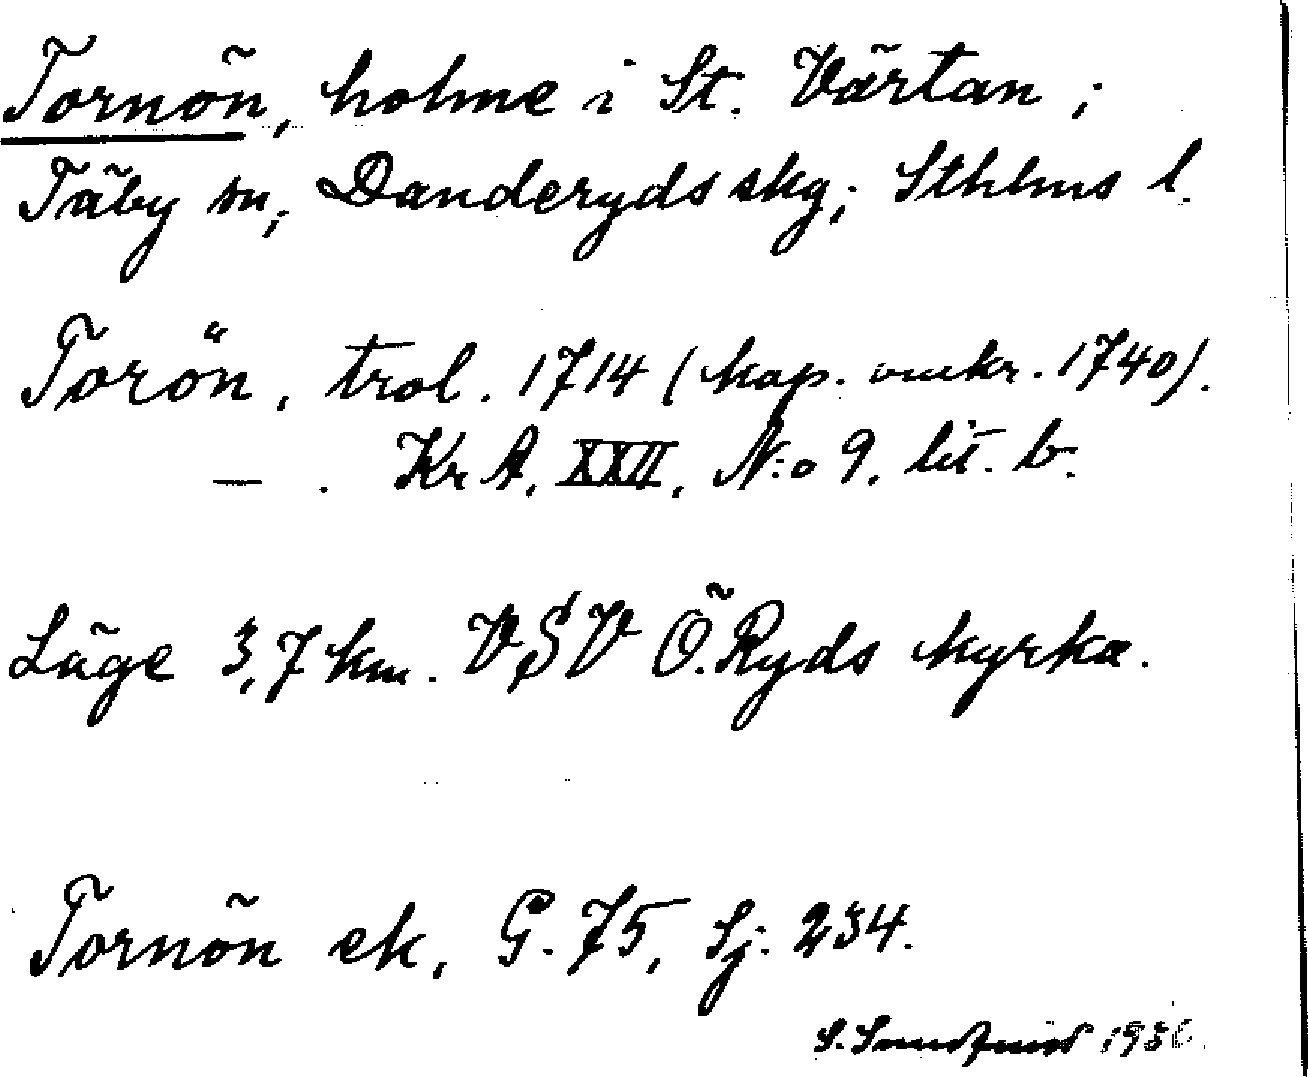 Tornön, holme i St. Värtan;
Täby sn, Danderyds skg; Sthlms l.
Torön, trol. 1714 (kop. omkr. 1740).
— . Kr A. XXII, N:o 9. lit. b.
Läge 3,7 km. VSV Ö. Ryds kyrka.
Tornön ek, G. 75, Sj. 234.
S. 193